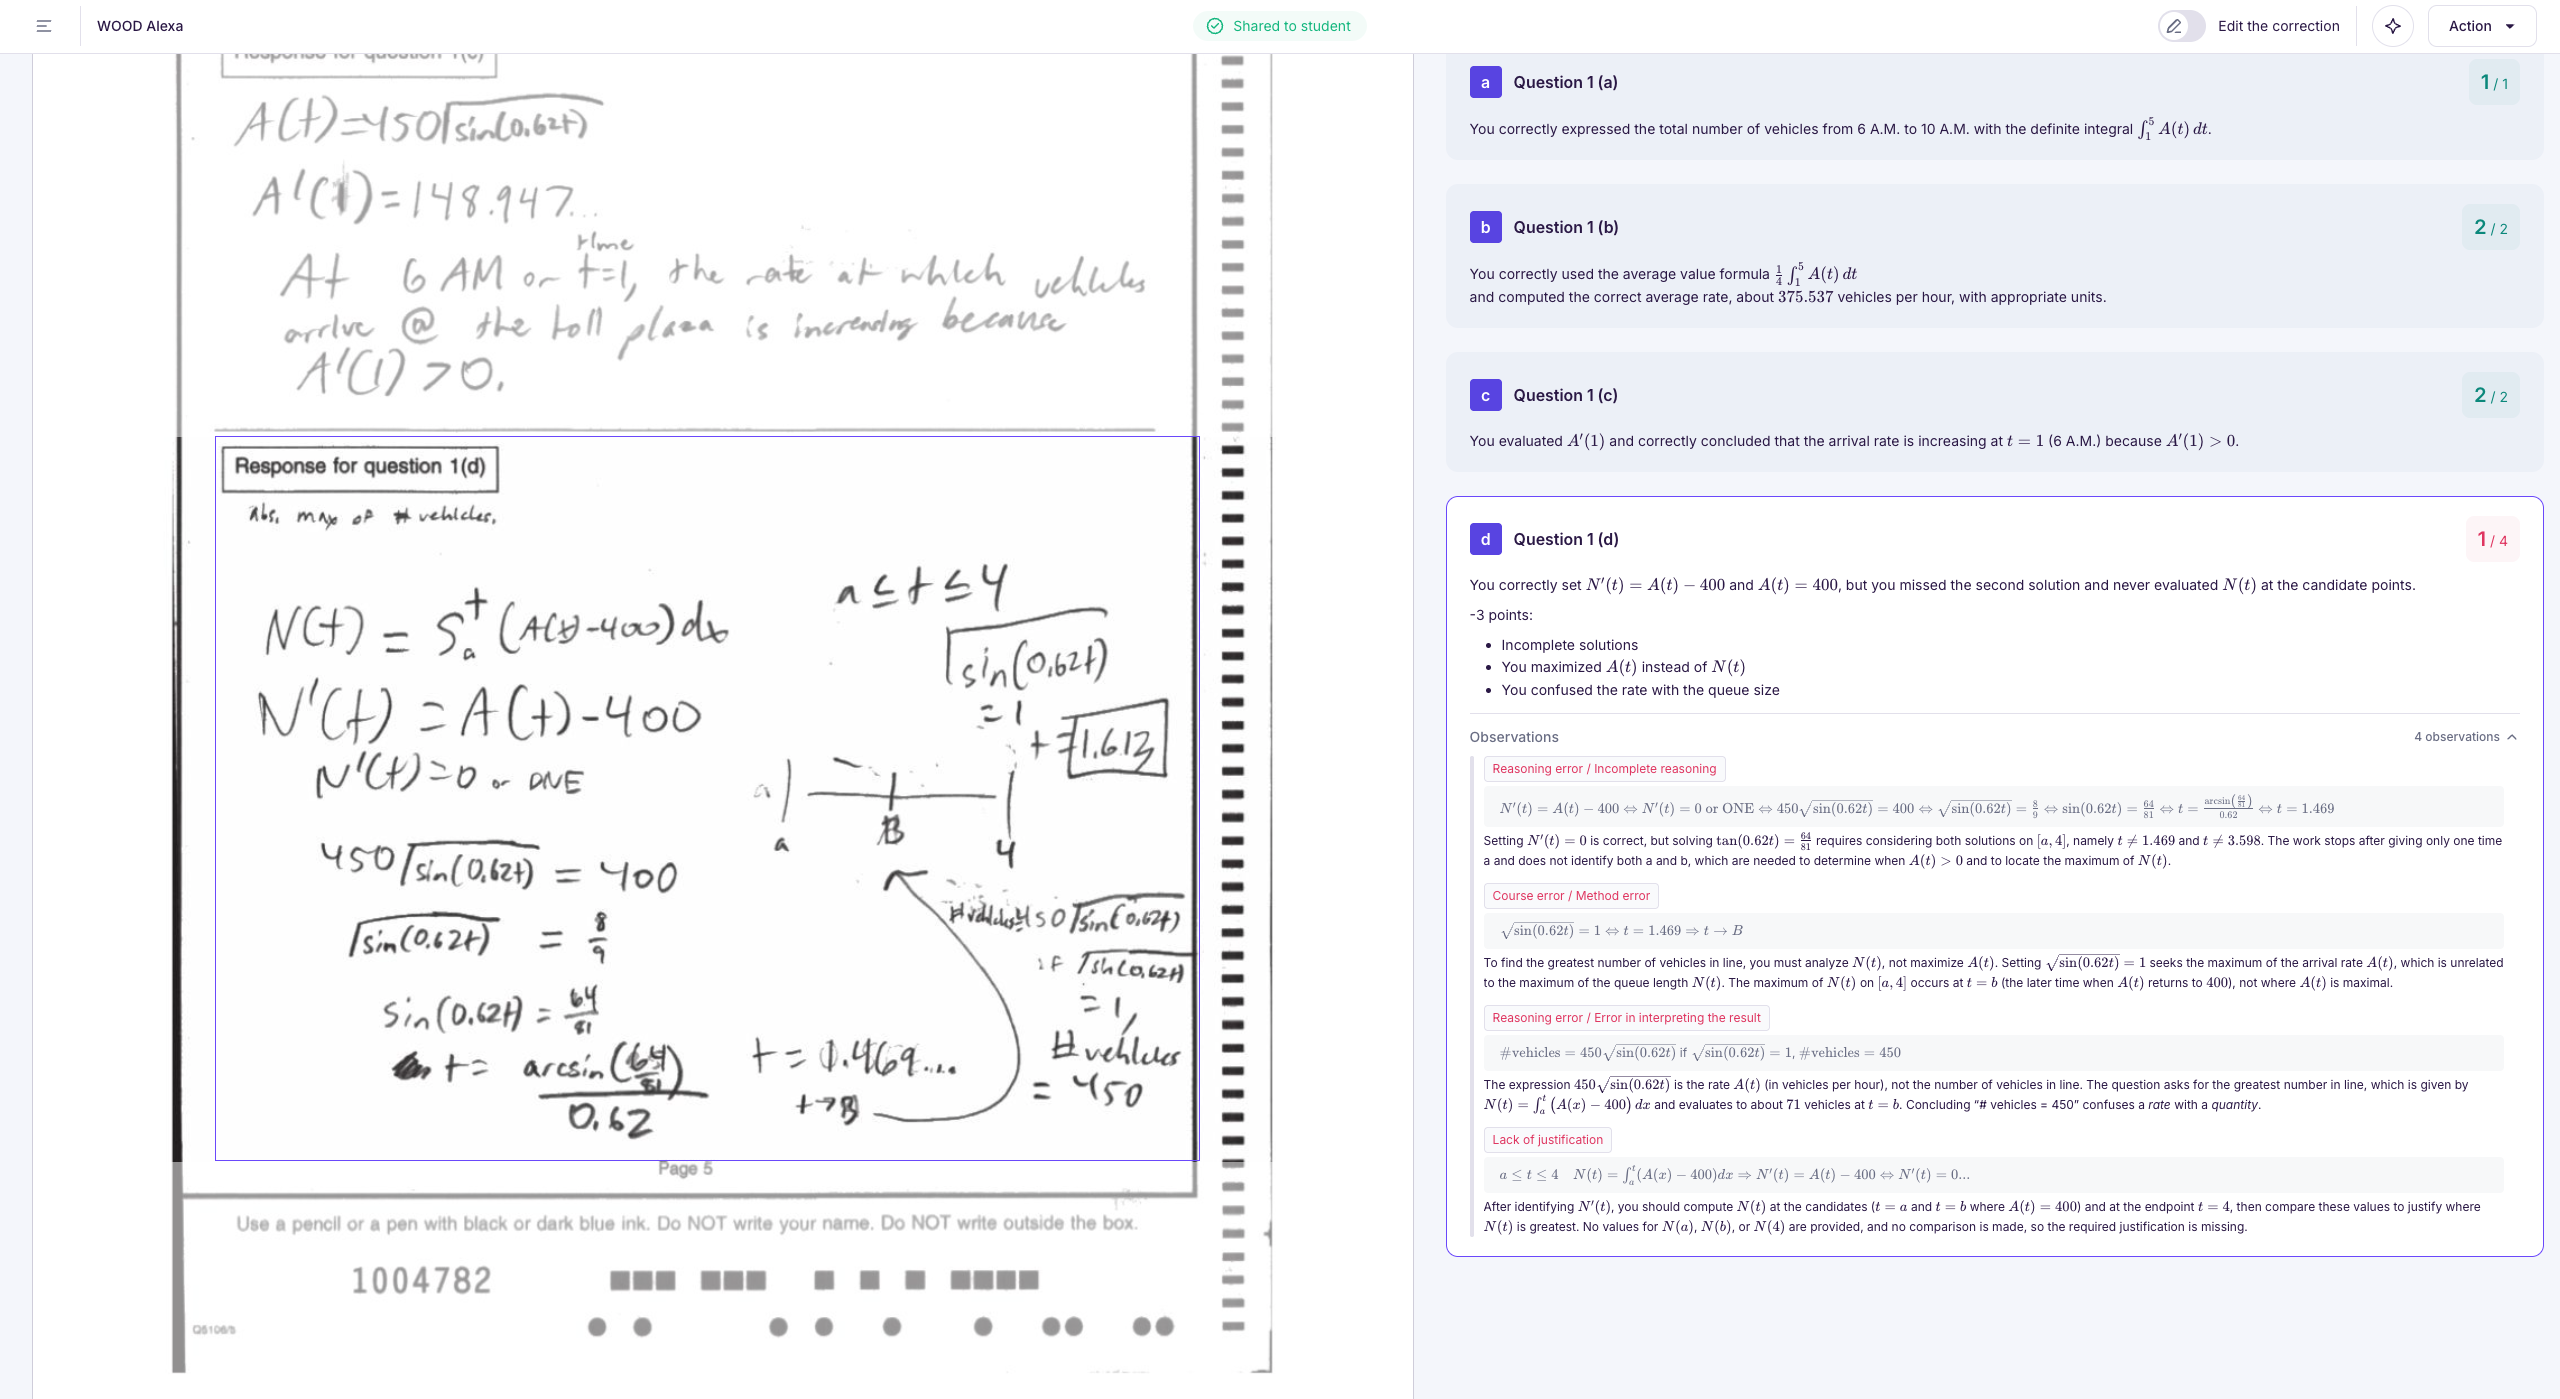 WOOD Alexa
Shared to student
Edit the correction
Action
Response for question 1(c)
A(t)=450√sin(0.62t)
A'(1)=148.947...
time
At 6 AM or t=1, the rate at which vehicles
arrive @ the toll plaza is increasing because
A'(1) >0.
Response for question 1(d)
Abs. max of # vehicles.
a ≤ t ≤ 4
N(t) = ∫ₐᵗ (A(x)-400)dx
√sin(0.62t)
= 1
N'(t) = A(t)-400
t = 1.613
N'(t)=0 or DNE
a
a
B
4
450√sin(0.62t) = 400
# vehicles=450√sin(0.62t)
√sin(0.62t) = 8/9
if √sin(0.62t)
= 1,
sin(0.62t) = 64/81
t = arcsin(64/81)/0.62
t = 1.469...
# vehicles
= 450
t→B
Page 5
Use a pencil or a pen with black or dark blue ink. Do NOT write your name. Do NOT write outside the box.
1004782
Q5106/5
a
Question 1 (a)
1 / 1
You correctly expressed the total number of vehicles from 6 A.M. to 10 A.M. with the definite integral ∫₁⁵ A(t) dt.
b
Question 1 (b)
2 / 2
You correctly used the average value formula 1/4 ∫₁⁵ A(t) dt
and computed the correct average rate, about 375.537 vehicles per hour, with appropriate units.
c
Question 1 (c)
2 / 2
You evaluated A′(1) and correctly concluded that the arrival rate is increasing at t = 1 (6 A.M.) because A′(1) > 0.
d
Question 1 (d)
1 / 4
You correctly set N′(t) = A(t) − 400 and A(t) = 400, but you missed the second solution and never evaluated N(t) at the candidate points.
-3 points:
• Incomplete solutions
• You maximized A(t) instead of N(t)
• You confused the rate with the queue size
Observations
4 observations
Reasoning error / Incomplete reasoning
N′(t) = A(t) − 400 ⇔ N′(t) = 0 or ONE ⇔ 450√sin(0.62t) = 400 ⇔ √sin(0.62t) = 8/9 ⇔ sin(0.62t) = 64/81 ⇔ t = arcsin(64/81)/0.62 ⇔ t = 1.469
Setting N′(t) = 0 is correct, but solving tan(0.62t) = 64/81 requires considering both solutions on [a, 4], namely t ≠ 1.469 and t ≠ 3.598. The work stops after giving only one time
a and does not identify both a and b, which are needed to determine when A(t) > 0 and to locate the maximum of N(t).
Course error / Method error
√sin(0.62t) = 1 ⇔ t = 1.469 ⇒ t → B
To find the greatest number of vehicles in line, you must analyze N(t), not maximize A(t). Setting √sin(0.62t) = 1 seeks the maximum of the arrival rate A(t), which is unrelated
to the maximum of the queue length N(t). The maximum of N(t) on [a, 4] occurs at t = b (the later time when A(t) returns to 400), not where A(t) is maximal.
Reasoning error / Error in interpreting the result
#vehicles = 450√sin(0.62t) if √sin(0.62t) = 1, #vehicles = 450
The expression 450√sin(0.62t) is the rate A(t) (in vehicles per hour), not the number of vehicles in line. The question asks for the greatest number in line, which is given by
N(t) = ∫ₐᵗ (A(x) − 400) dx and evaluates to about 71 vehicles at t = b. Concluding “# vehicles = 450” confuses a rate with a quantity.
Lack of justification
a ≤ t ≤ 4 N(t) = ∫ₐᵗ(A(x) − 400)dx ⇒ N′(t) = A(t) − 400 ⇔ N′(t) = 0...
After identifying N′(t), you should compute N(t) at the candidates (t = a and t = b where A(t) = 400) and at the endpoint t = 4, then compare these values to justify where
N(t) is greatest. No values for N(a), N(b), or N(4) are provided, and no comparison is made, so the required justification is missing.